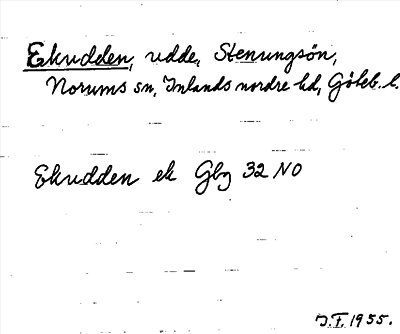 Ekudden, udde, Stenungsön,
Norums sn, Inlands nordre hd, Göteb. l.
Ekudden ek Gbg 32 NO
J.F. 1955.